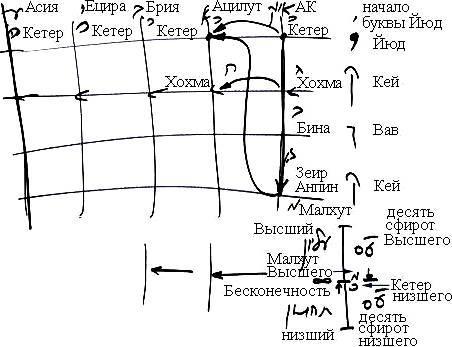 Асия Ецира Брия Ацилут АК начало
буквы Йюд
Кетер Кетер Кетер Кетер Кетер Йюд
Хохма Хохма Кей
Бина Вав
Зеир
Анпин Кей
Малхут
Высший десять
сфирот
Высшего
Малхут
Высшего
Бесконечность Кетер
низшего
низший десять
сфирот
низшего